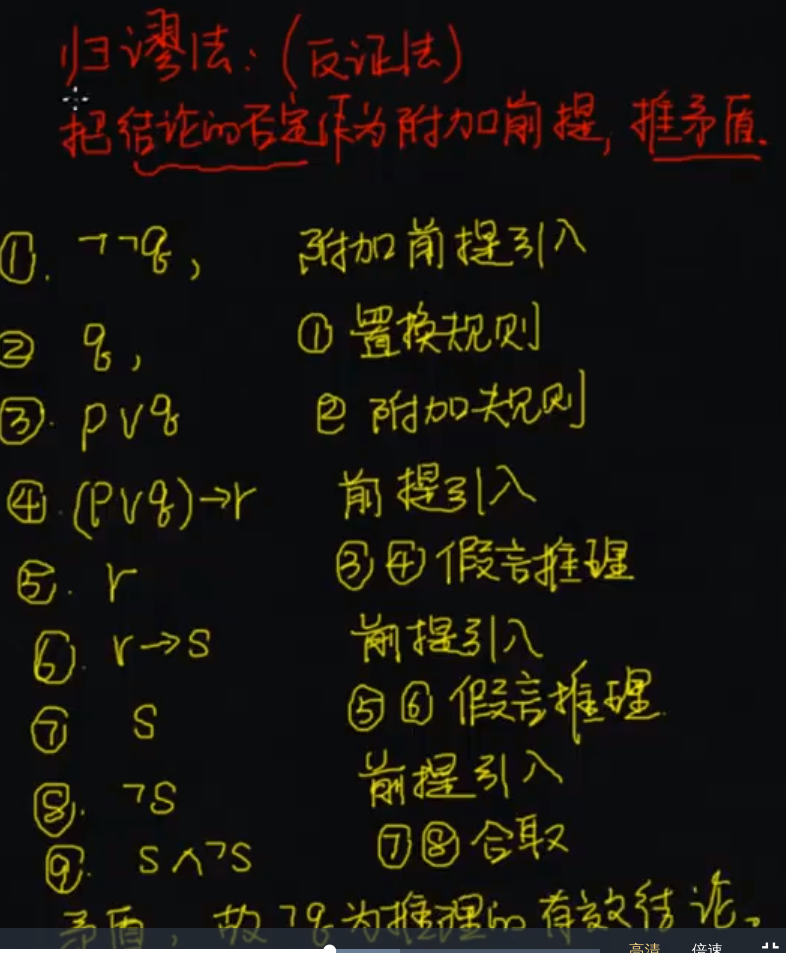 归谬法:(反证法)
把结论的否定作为附加前提,推矛盾.
①. ¬¬q, 附加前提引入
② q, ①置换规则
③. p∨q ②附加规则
④.(p∨q)→r 前提引入
⑤. r ③④假言推理
⑥. r→s 前提引入
⑦ s ⑤⑥假言推理
⑧. ¬s 前提引入
⑨. s∧¬s ⑦⑧合取
矛盾,故¬q为推理的有效结论。
高清 倍速